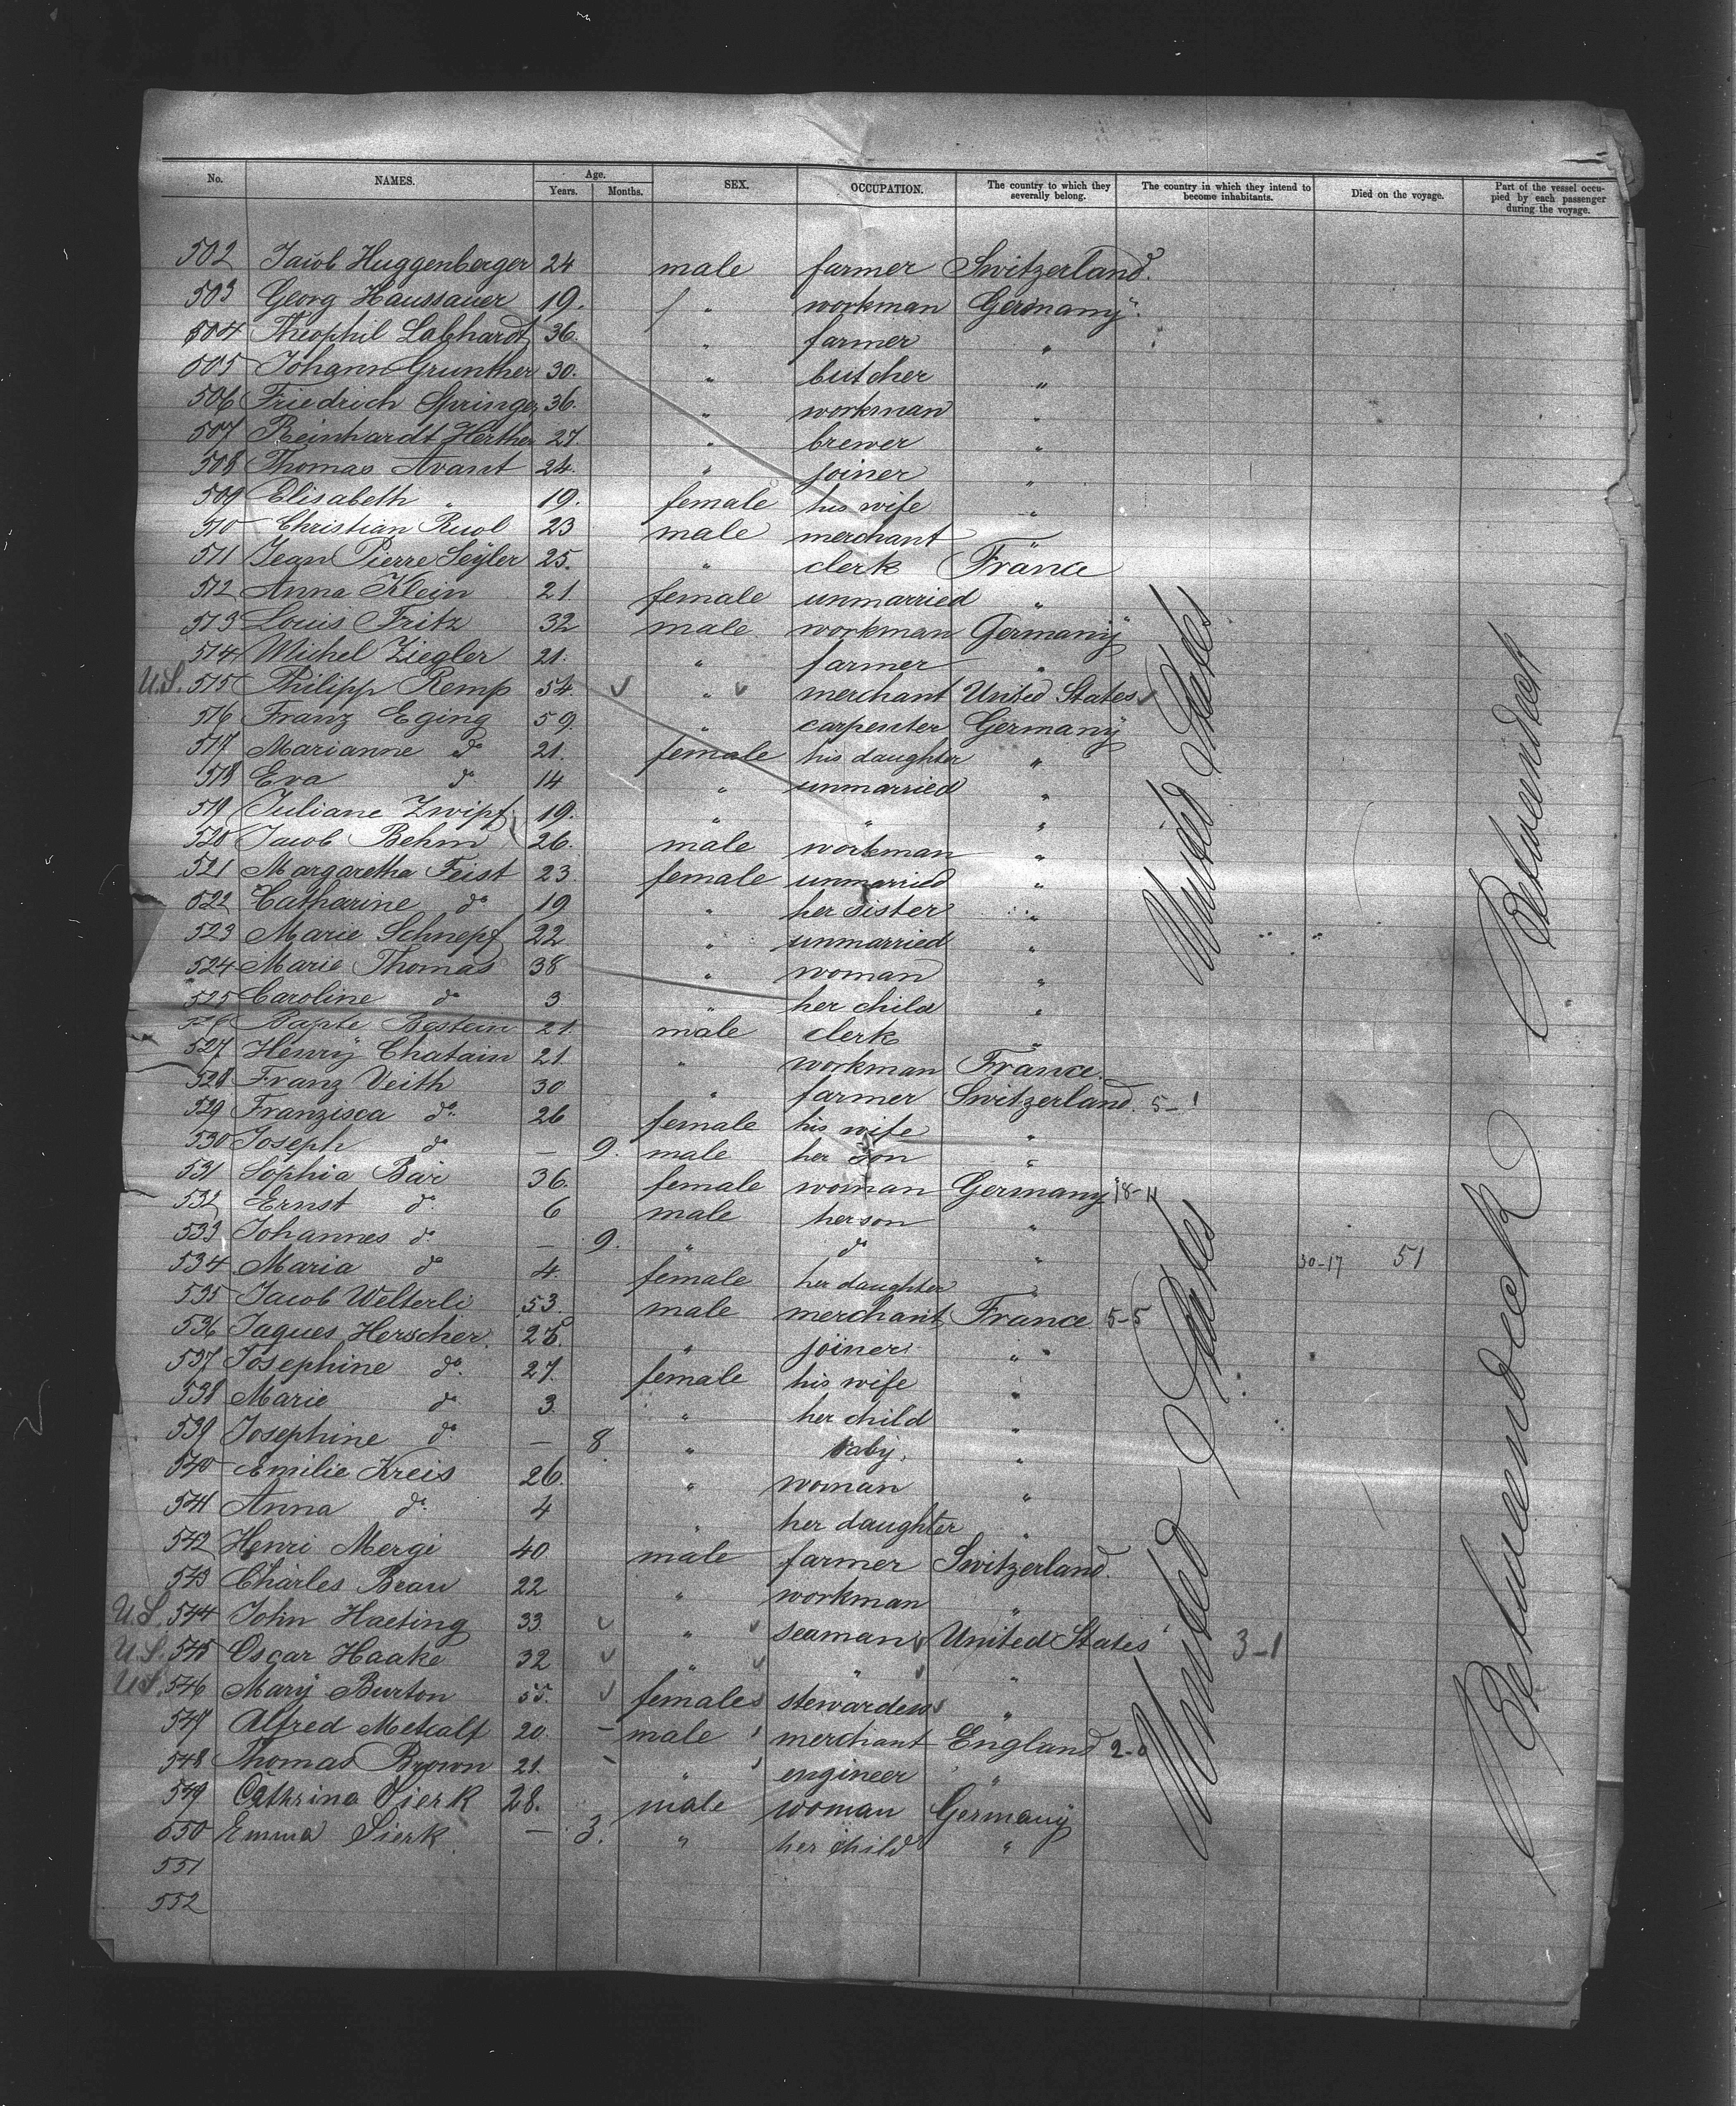 No. NAMES. Age. Years. Months. SEX. OCCUPATION. The country to which they severally belong. The country in which they intend to become inhabitants. Died on the voyage. Part of the vessel occupied by each passenger during the voyage.
502 Jacob Huggenberger 24 male farmer Switzerland.
503 Georg Haussauer 19. " workman Germany
504 Theophil Labhardt 36. " farmer "
505 Johann Grunther 30. " butcher "
506 Friedrich Springer 36. " workman "
507 Reinhardt Herther 27. " brewer "
508 Thomas Avant 24. " joiner "
509 Elisabeth " 19. female his wife "
510 Christian Ruol 23 male merchant "
511 Jean Pierre Seyler 25. " clerk France
512 Anna Klein 21. female unmarried "
513 Louis Fritz 32 male workman Germany
514 Michel Ziegler 21. " farmer "
U.S. 515 Philipp Remp 54. " merchant United States
516 Franz Eging 59. " carpenter Germany
517 Marianne do 21. female his daughter "
518 Eva do 14 " unmarried "
519 Juliane Zwipf 19. " " "
520 Jacob Behm 26. male workman "
521 Margaretha Feist 23. female unmarried "
522 Catharine do 19 " her sister "
523 Marie Schnepf 22 " unmarried "
524 Marie Thomas 38 " woman "
525 Caroline do 3 " her child "
526 Bapte Bestein 21. male clerk "
527 Henry Chatain 21. " workman France.
528 Franz Veith 30 " farmer Switzerland. 5-1
529 Franzisca do. 26 female his wife "
530 Joseph do — 9. male her son "
531 Sophia Bär 36. female woman Germany 18-11
532 Ernst do. 6 male her son "
533 Johannes do. — 9. " do "
534 Maria do 4. female her daughter " 30-17 51
535 Jacob Welterli 53. male merchant France 5-5
536 Jaques Herscher. 28. " joiner "
537 Josephine do. 27. female his wife "
538 Marie do 3. " her child "
539 Josephine do. — 8. " baby. "
540 Emilie Kreis 26. " woman "
541 Anna do. 4 " her daughter "
542 Henri Mergi 40. male farmer Switzerland.
543 Charles Beau 22 " workman "
U.S. 544 John Haeting 33. " seaman United States 3-1
U.S. 545 Oscar Haake 32 " " "
U.S. 546 Mary Burton 55. female stewardess "
547 Alfred Metcalf 20. — male merchant England 2-0
548 Thomas Brown 21. — " engineer "
549 Cathrina Sierk 28. male woman Germany
550 Emma Sierk — 3. " her child "
551
552
United States
United States
Betweendeck
Betweendeck